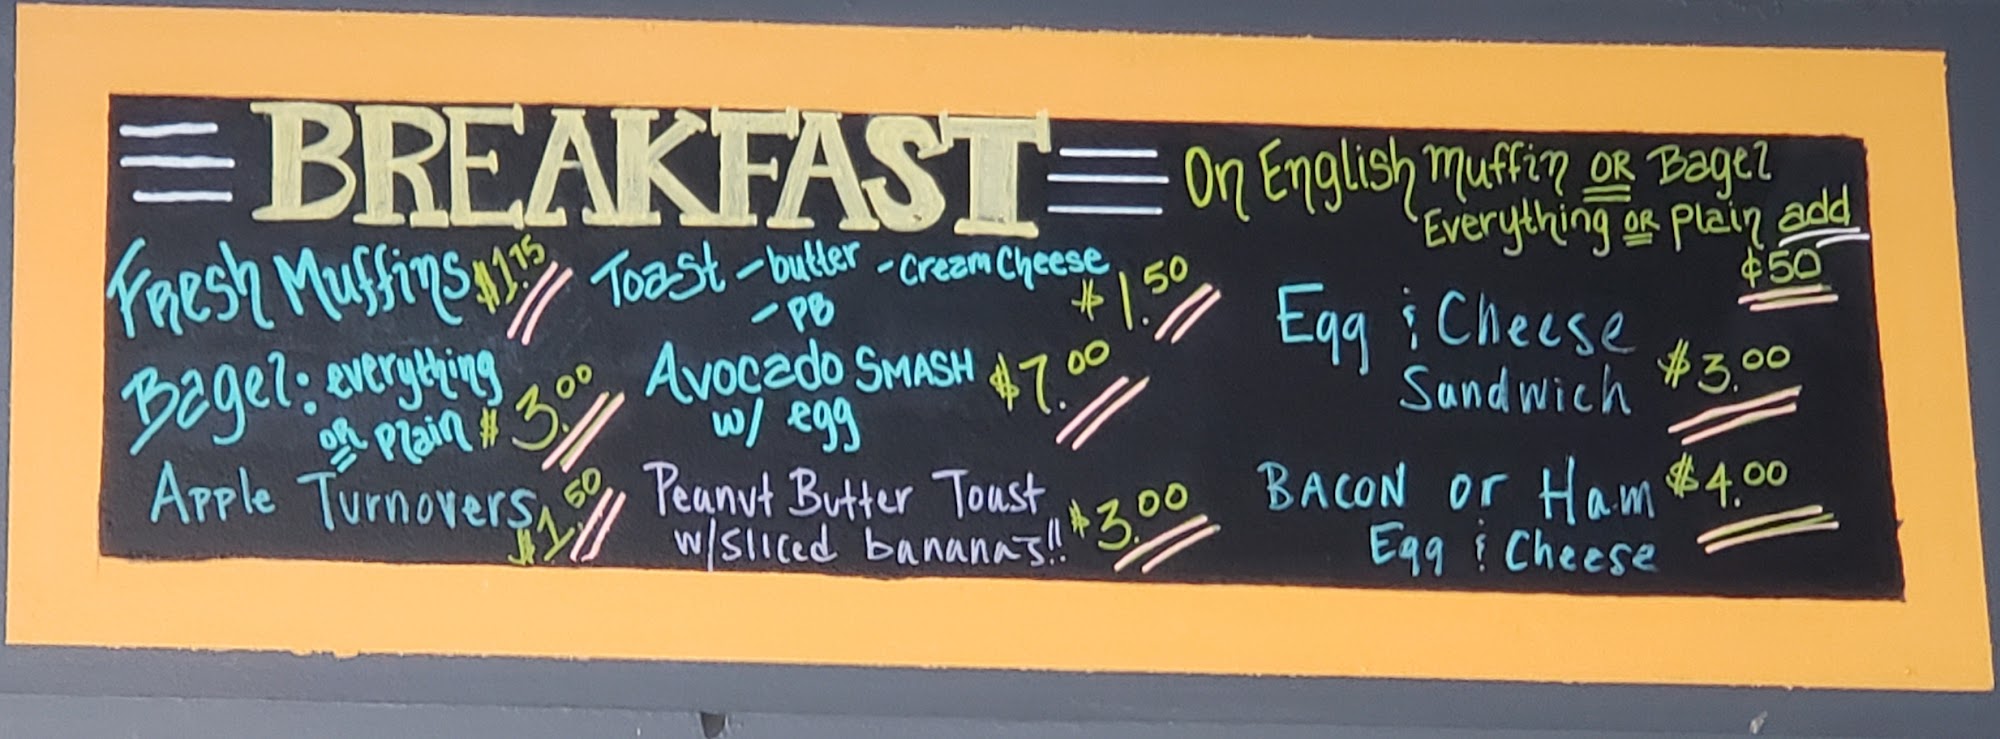 BREAKFAST
Fresh Muffins $1.75
Bagel: everything
or plain $3.00
Apple Turnovers $1.50
Toast - butter - Cream Cheese
- PB $1.50
Avocado SMASH $7.00
w/ egg
Peanut Butter Toast
w/sliced bananas!! $3.00
On English Muffin OR Bagel
Everything OR Plain add
¢50
Egg & Cheese
Sandwich $3.00
BACON or Ham $4.00
Egg & Cheese